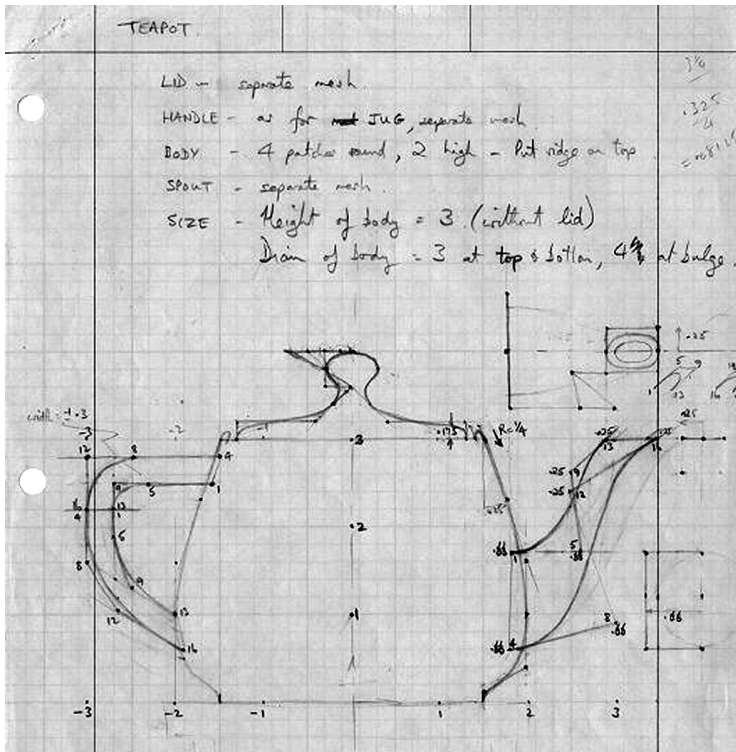 TEAPOT.
LID - separate mesh.
HANDLE - as for JUG, separate mesh
BODY - 4 patches round, 2 high - Put ridge on top
SPOUT - separate mesh.
SIZE - Height of body = 3. (without lid)
Diam of body = 3 at top & bottom, 4 at bulge.
.325
.25
5 9
1 13 16
.25
width = .3
-3 -2 -1 .175 R=1/4 .25 .25
12 8 4 3 13 16
9 5 1 .25 9
.25 12
16 13
4 1 2
5 .66 5
1 .66
8 9
12 13 1 8 .66 .66
16 .66 4
-3 -2 -1 1 2 3